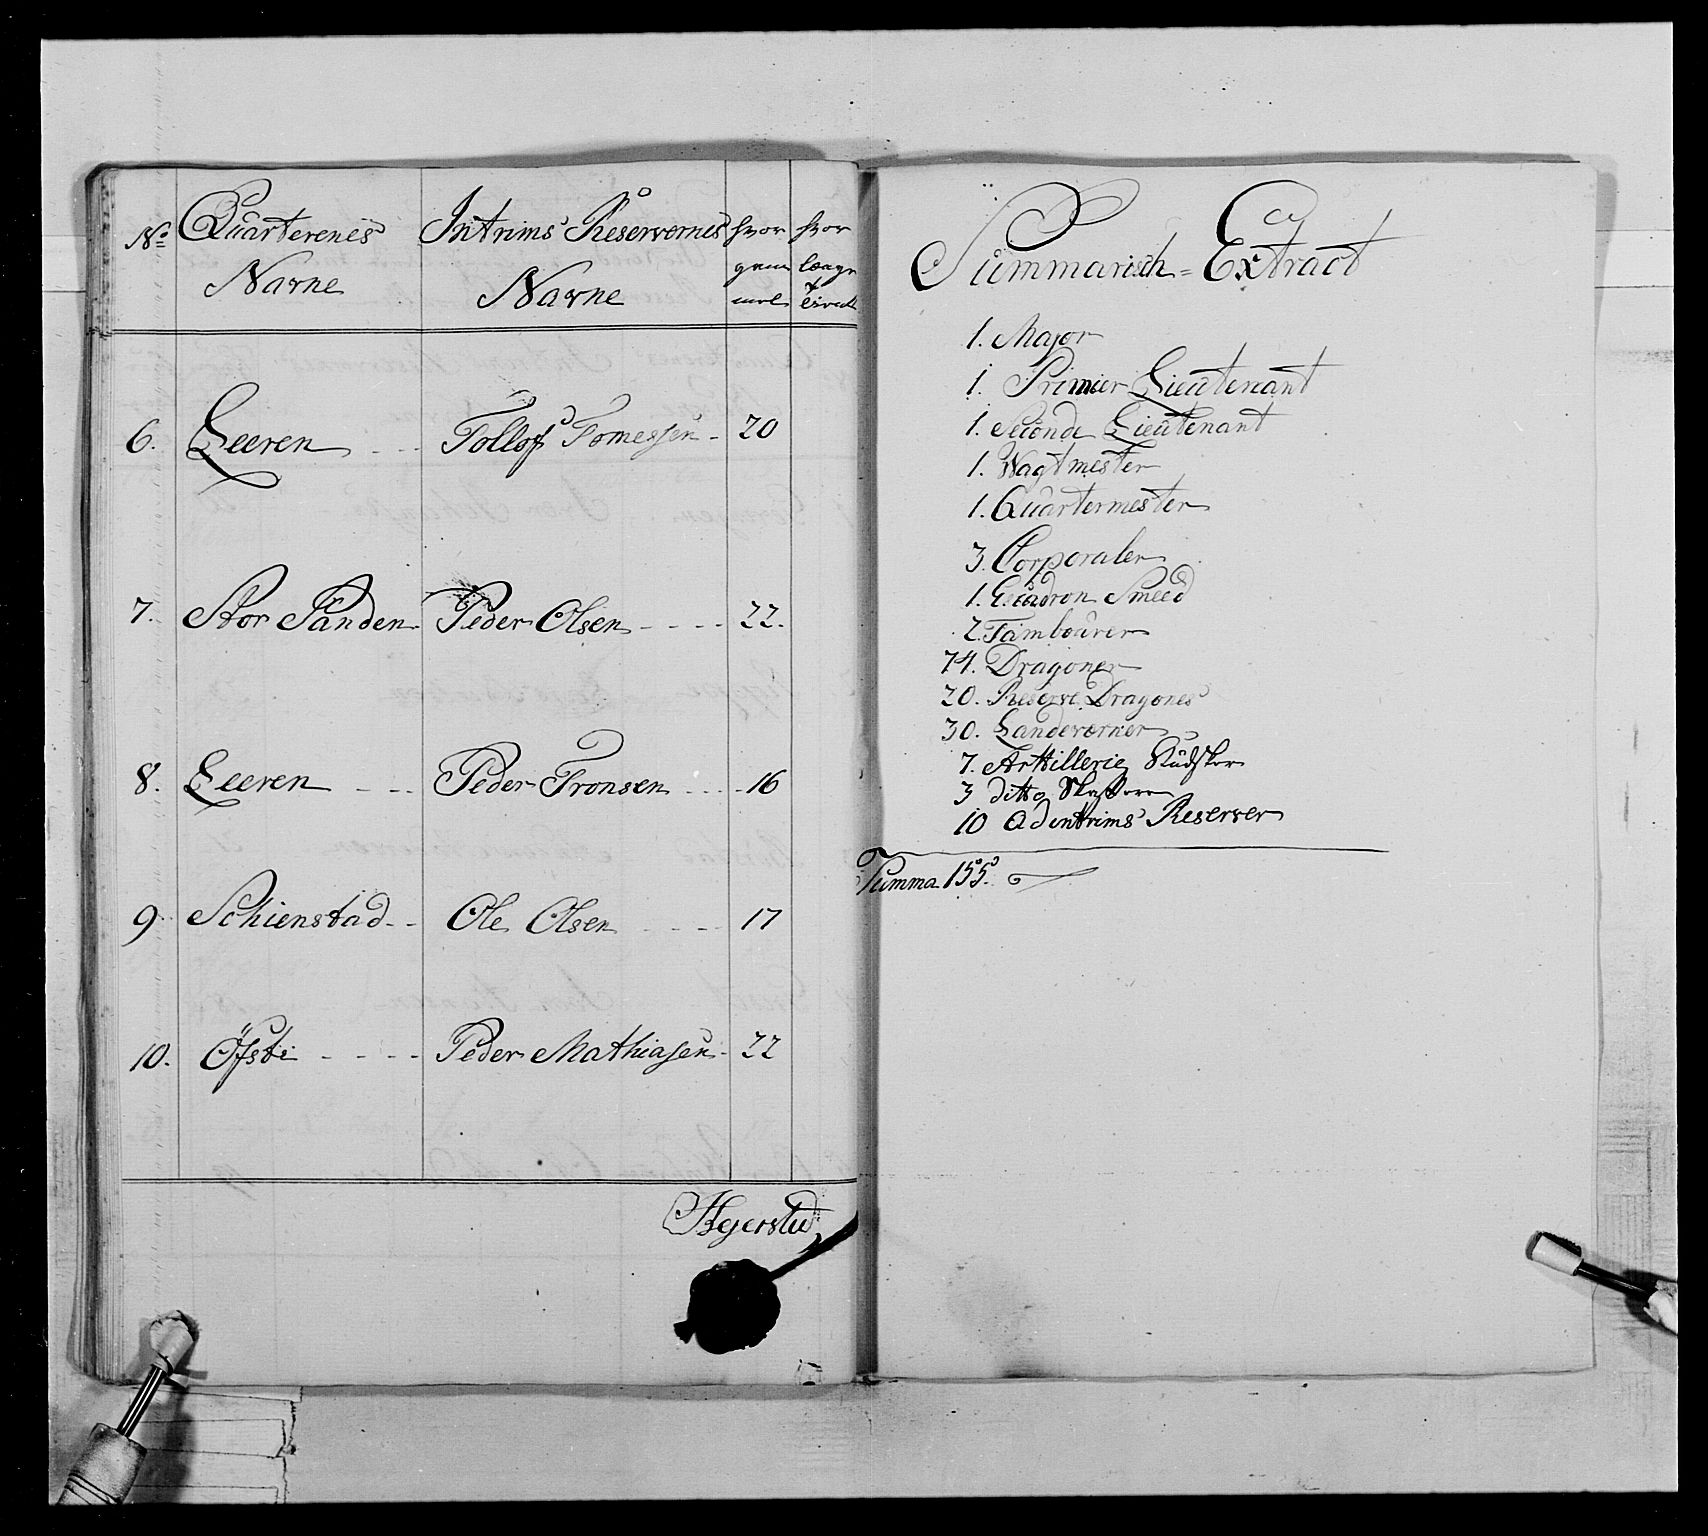 No Quarterenes Intrims Reservernes hvor hvor
Navne Navne længe
6. Leeren Tollof Tomessen 20
7. Stor Sanden Peder Olsen 22.
8. Leeren Peder Tronsen 16
9 Schienstad Ole Olsen 17
10. Öfsti Peder Mathiasen 22
Hegerstad
Summarisch = Extract
1. Major
1. Primier Lieutenant
1. Seconde Lieutenant
1. Wagtmester
1. Quartermester
3. Corporaler
1. Escadron Smeed
2. Tambourer
74. Dragoner
20. Reserve Dragones
30. Landeværner
7. Artillerie Kudsker
3 ditto
10 Adintrims Reserver
Summa 155.